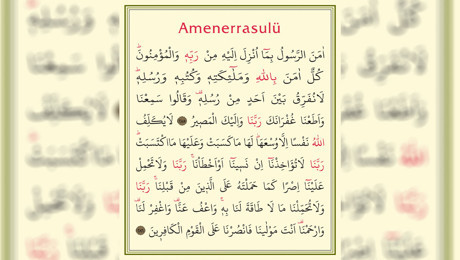 Amenerrasulü
اٰمَنَ الرَّسُولُ بِمَٓا اُنْزِلَ اِلَيْهِ مِنْ رَبِّهٖ وَالْمُؤْمِنُونَۜ
كُلٌّ اٰمَنَ بِاللّٰهِ وَمَلٰٓئِكَتِهٖ وَكُتُبِهٖ وَرُسُلِهٖۜ
لَانُفَرِّقُ بَيْنَ اَحَدٍ مِنْ رُسُلِهٖ۠ وَقَالُوا سَمِعْنَا
وَاَطَعْنَا غُفْرَانَكَ رَبَّنَا وَاِلَيْكَ الْمَصٖيرُ لَايُكَلِّفُ
اللّٰهُ نَفْسًا اِلَّاوُسْعَهَاۜ لَهَا مَاكَسَبَتْ وَعَلَيْهَا مَااكْتَسَبَتْۜ
رَبَّنَا لَاتُؤَاخِذْنَٓا اِنْ نَسٖينَٓا اَوْاَخْطَأْنَاۚ رَبَّنَا وَلَاتَحْمِلْ
عَلَيْنَٓا اِصْرًا كَمَا حَمَلْتَهُ عَلَى الَّذٖينَ مِنْ قَبْلِنَاۚ رَبَّنَا
وَلَاتُحَمِّلْنَا مَا لَا طَاقَةَ لَنَا بِهٖۚ وَاعْفُ عَنَّا۠ وَاغْفِرْ لَنَا۠
وَارْحَمْنَا۠ اَنْتَ مَوْلٰينَا فَانْصُرْنَا عَلَى الْقَوْمِ الْكَافِرٖينَ